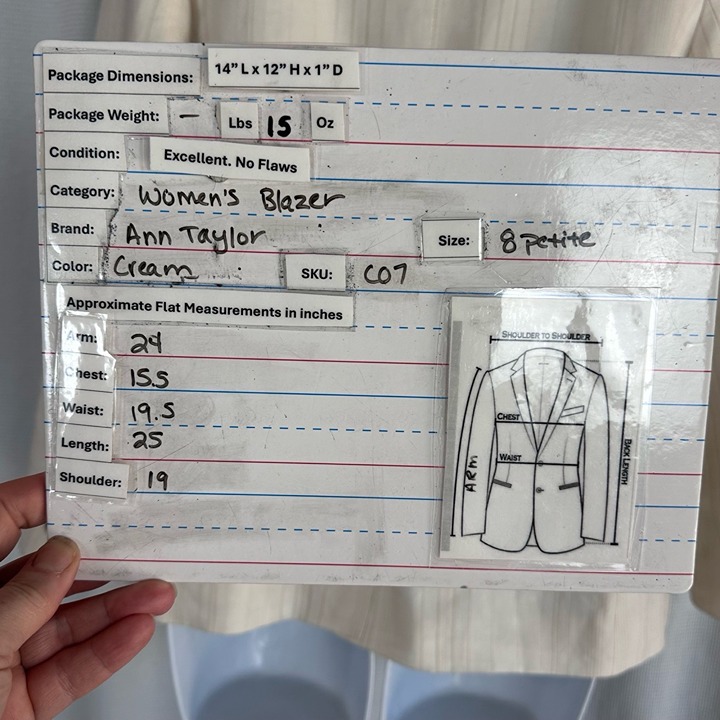 Package Dimensions: 14” L x 12” H x 1” D
Package Weight: – Lbs 15 Oz
Condition: Excellent. No Flaws
Category: Women's Blazer
Brand: Ann Taylor Size: 8 petite
Color: Cream SKU: C07
Approximate Flat Measurements in inches
Arm: 24
Chest: 15.5
Waist: 19.5
Length: 25
Shoulder: 19
SHOULDER TO SHOULDER
CHEST
WAIST
ARM
BACK LENGTH